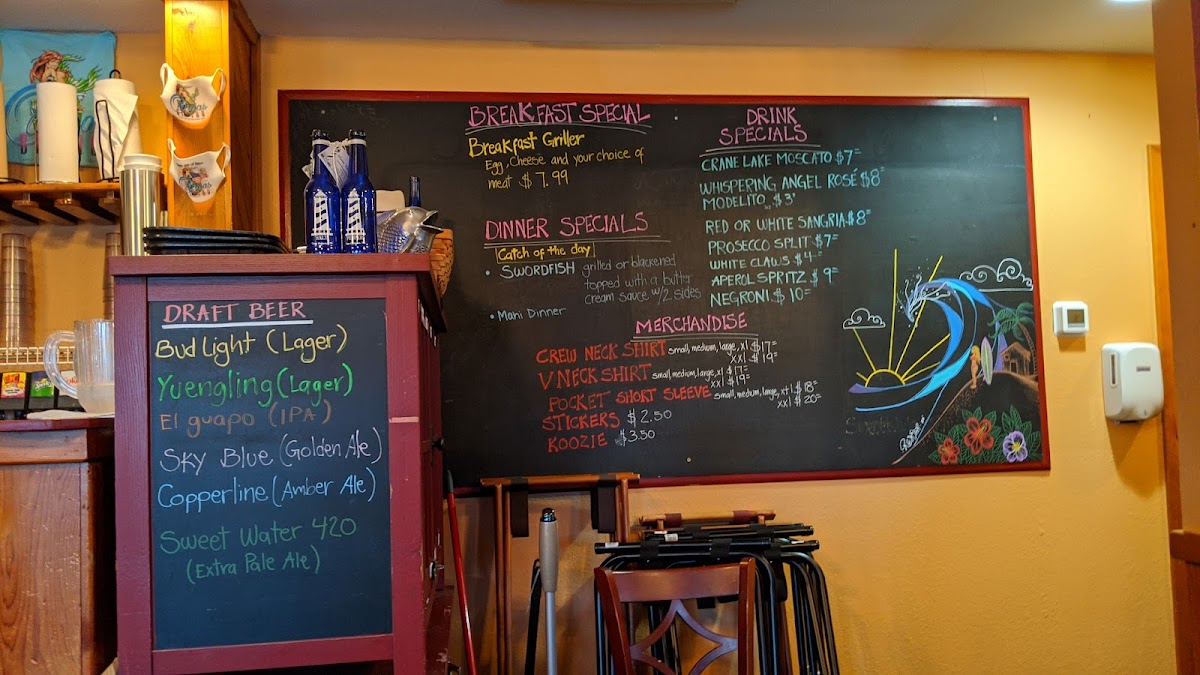 BREAKFAST SPECIAL
Breakfast Griller
Egg, Cheese and your choice of
meat $7.99
DINNER SPECIALS
Catch of the day
• SWORDFISH grilled or blackened
topped with a butter
cream sauce w/2 sides
• Mahi Dinner
DRINK
SPECIALS
CRANE LAKE MOSCATO $7
WHISPERING ANGEL ROSÉ $8
MODELITO $3
RED OR WHITE SANGRIA $8
PROSECCO SPLIT $7
WHITE CLAWS $4
APEROL SPRITZ $9
NEGRONI $10
MERCHANDISE
CREW NECK SHIRT small, medium, large, xl $17
xxl $19
V NECK SHIRT small, medium, large, xl $17
xxl $19
POCKET SHORT SLEEVE small, medium, large, xl $18
xxl $20
STICKERS $2.50
KOOZIE $3.50
DRAFT BEER
Bud Light (Lager)
Yuengling (Lager)
El guapo (IPA)
Sky Blue (Golden Ale)
Copperline (Amber Ale)
Sweet Water 420
(Extra Pale Ale)